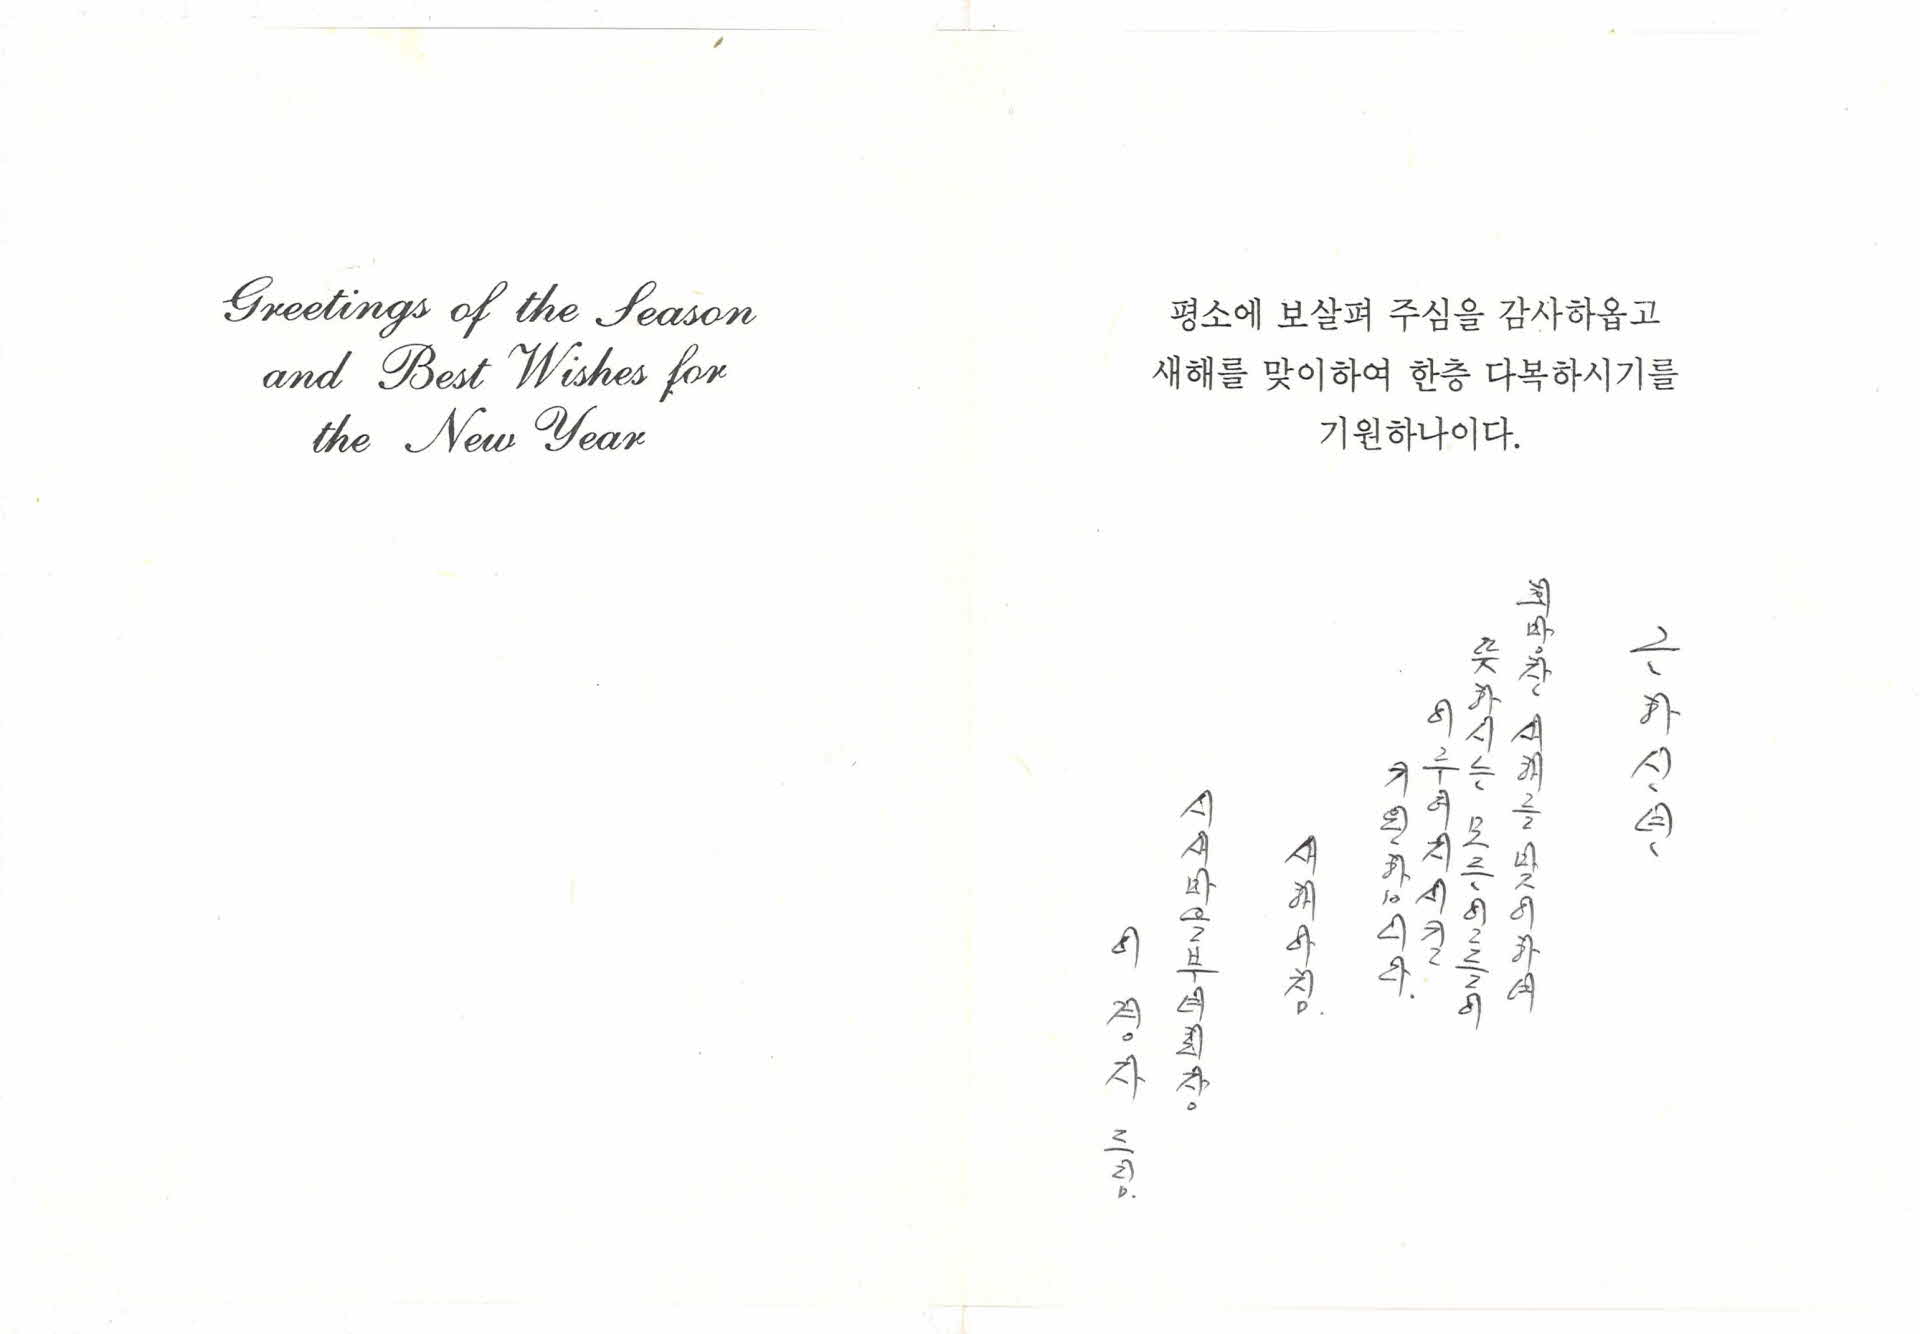 Greetings of the Season
and Best Wishes for
the New Year
평소에 보살펴 주심을 감사하옵고
새해를 맞이하여 한층 다복하시기를
기원하나이다.
근하신년
희망찬 새해를 맞이하여
뜻하시는 모든 일들이
이루어지시길
기원합니다.
새해아침.
시새마을부녀회장
이정자 드림.